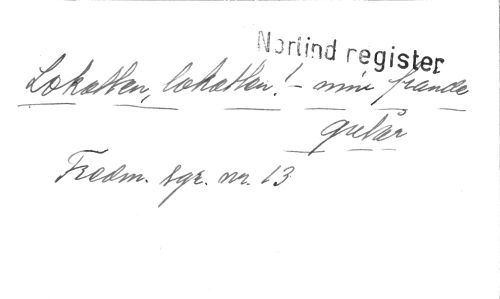 Norlind register
Lokatten, lokatten! - min frände
grelår
Fredm. sgr. nr. 13